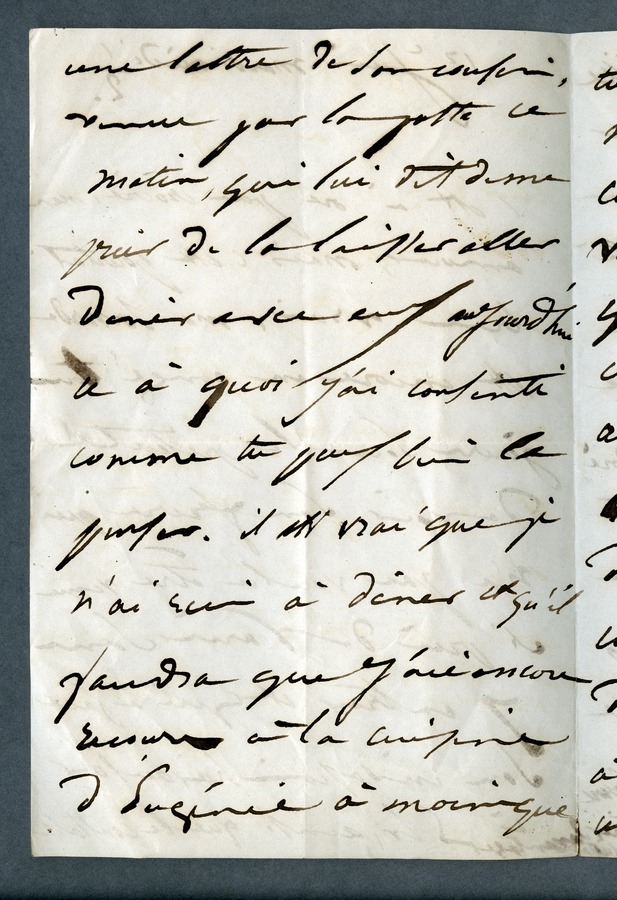 une lettre de son cousin,
venue par la poste ce
matin, qui lui dit de me
prier de la laisser aller
diner avec eux aujourd'hui
ce à quoi j'ai consenti
comme tu peux bien le
penser. il est vrai que je
n'ai rien à diner et qu'il
faudra que j'aie encore
recours à la cuisine
d'Eugénie à moins que